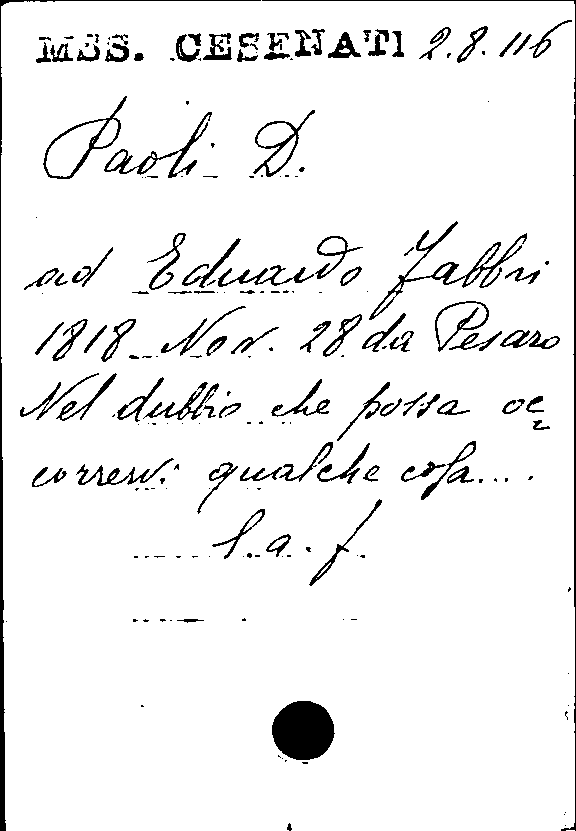 MSS. CESENATI 2.8.116
Paoli D.
ad Eduardo Fabbri
1818 Nov. 28 da Pesaro
Nel dubbio che possa oc=
corrervi qualche cosa....
l.a.f.